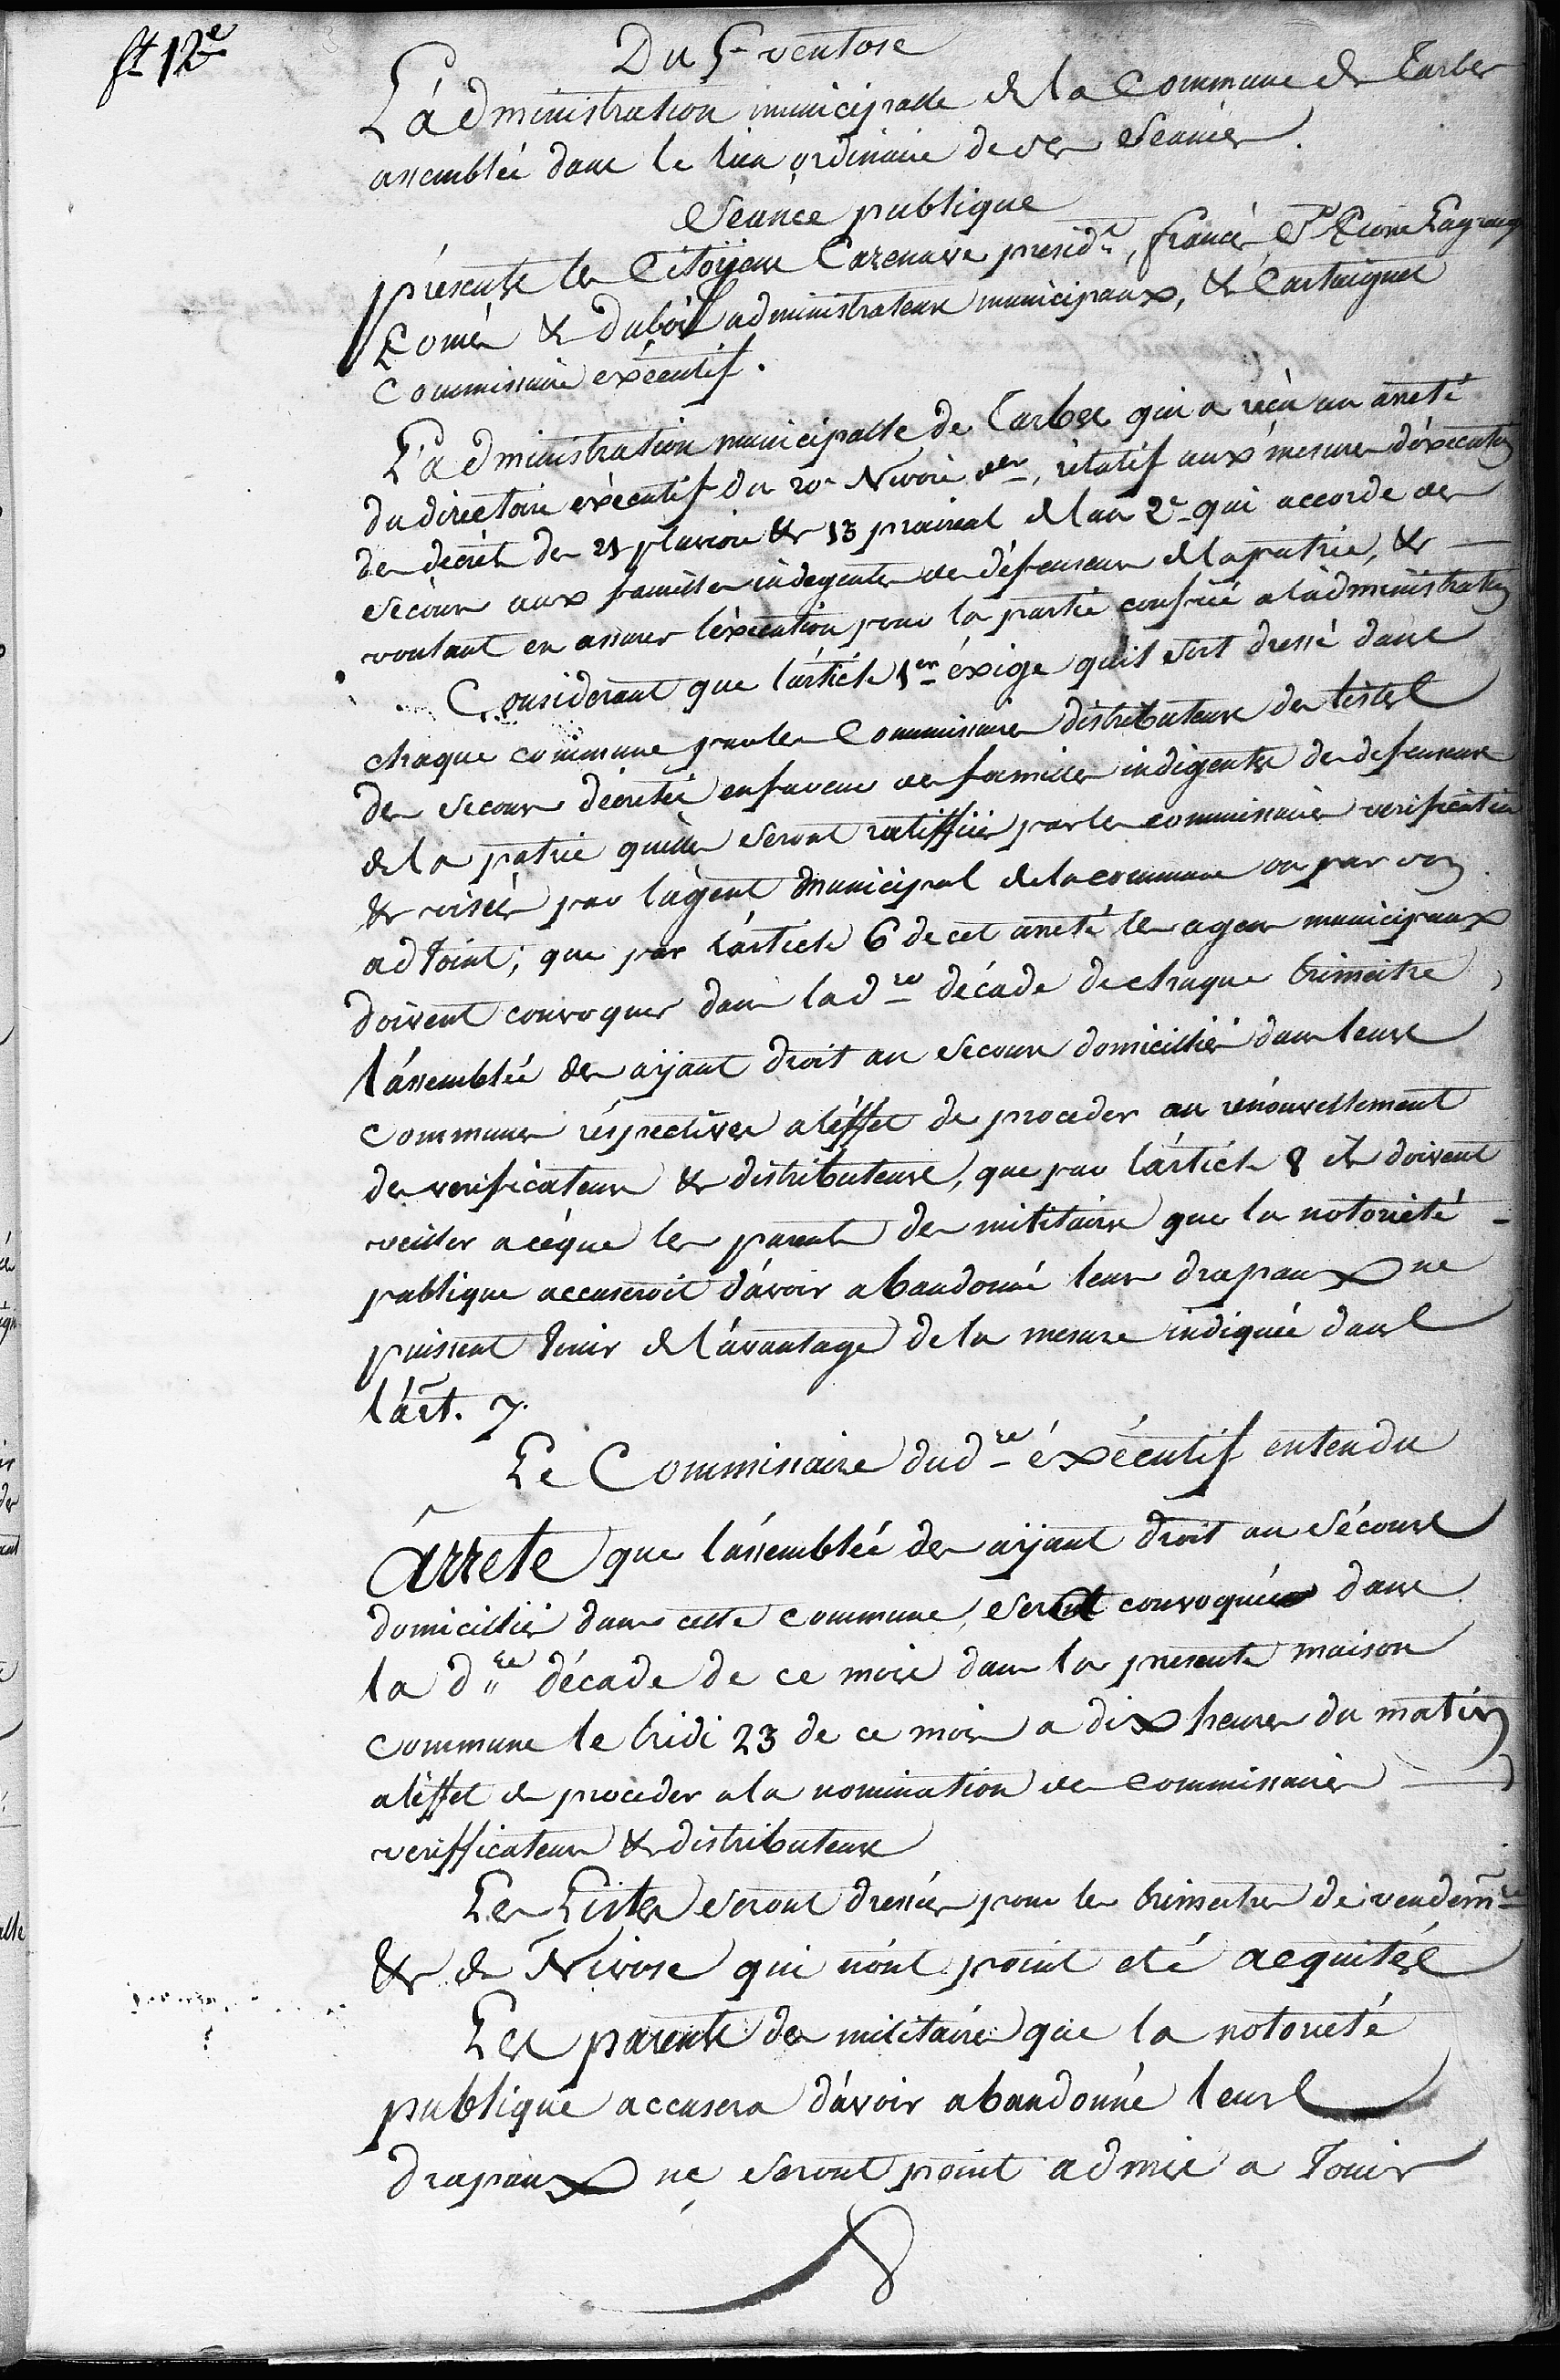 ft 12e
Du 5 ventose
L'administration municipalle de la Commune de Tarbes
assemblée dans le lieu ordinaire de ses séances.
Séance publique
présents les Citoyens Cazenave présidt, francès Lagrange
Comès & dubois administrateurs municipaux, & Castaignet
Commissaire exécutif.
L'administration municipalle de Tarbes qui a reçu un arreté
du directoire exécutif du 20 Nivose der, rélatif aux mésures d'éxécution
des décrets des 21 pluviose & 13 prairial de l'an 2e qui accorde des
sécours aux familles indegentes des défenseurs de la patrie, &
voulant en assurer l'éxécution pour la partie confiée a l'administration
Considerant que l'article 1er éxige qu'il soit dressé dans
chaque commune par les Commissaires distributeurs des listes
des secours décretés en faveur des familles indigentes des defenseurs
de la patrie qu'elles seront ratiffiées par les commissaires verificateurs
& visées par l'agent municipal de la commune ou par son
adjoint; que par l'article 6 de cet arreté les agens municipaux
doivent convoquer dans la dre décade de chaque trimestre
l'assemblée des ayant droit au secours domicilliés dans leurs
communes réspectives a l'éffet de proceder au rénouvellement
des verificateurs & distributeurs, que par l'article 8 ils doivent
veiller a céque les parents des militaires que la notorieté
publique accuseroit d'avoir abandonné leurs drapaux ne
puissent jouir de l'avantage de la mesure indiquée dans
l'art. 7.
Le Commissaire dudre éxécutif entendu
Arrete que l'assemblée des ayant droit au sécours
domicilliés dans cette commune, sera convoquée dans
la dre décade de ce mois dans la presente maison
commune le tridi 23 de ce mois a dix heures du matin
a l'éffet de proceder a la nomination des commissaires
verifficateurs & distributeurs
Les Listes seront dressées pour les trimestres de vendemre
& de Nivose qui n'ont point eté acquités
Les parents des militaires que la notorieté
publique accusera d'avoir abandonné leurs
drapaux ne seront point admis a jouir